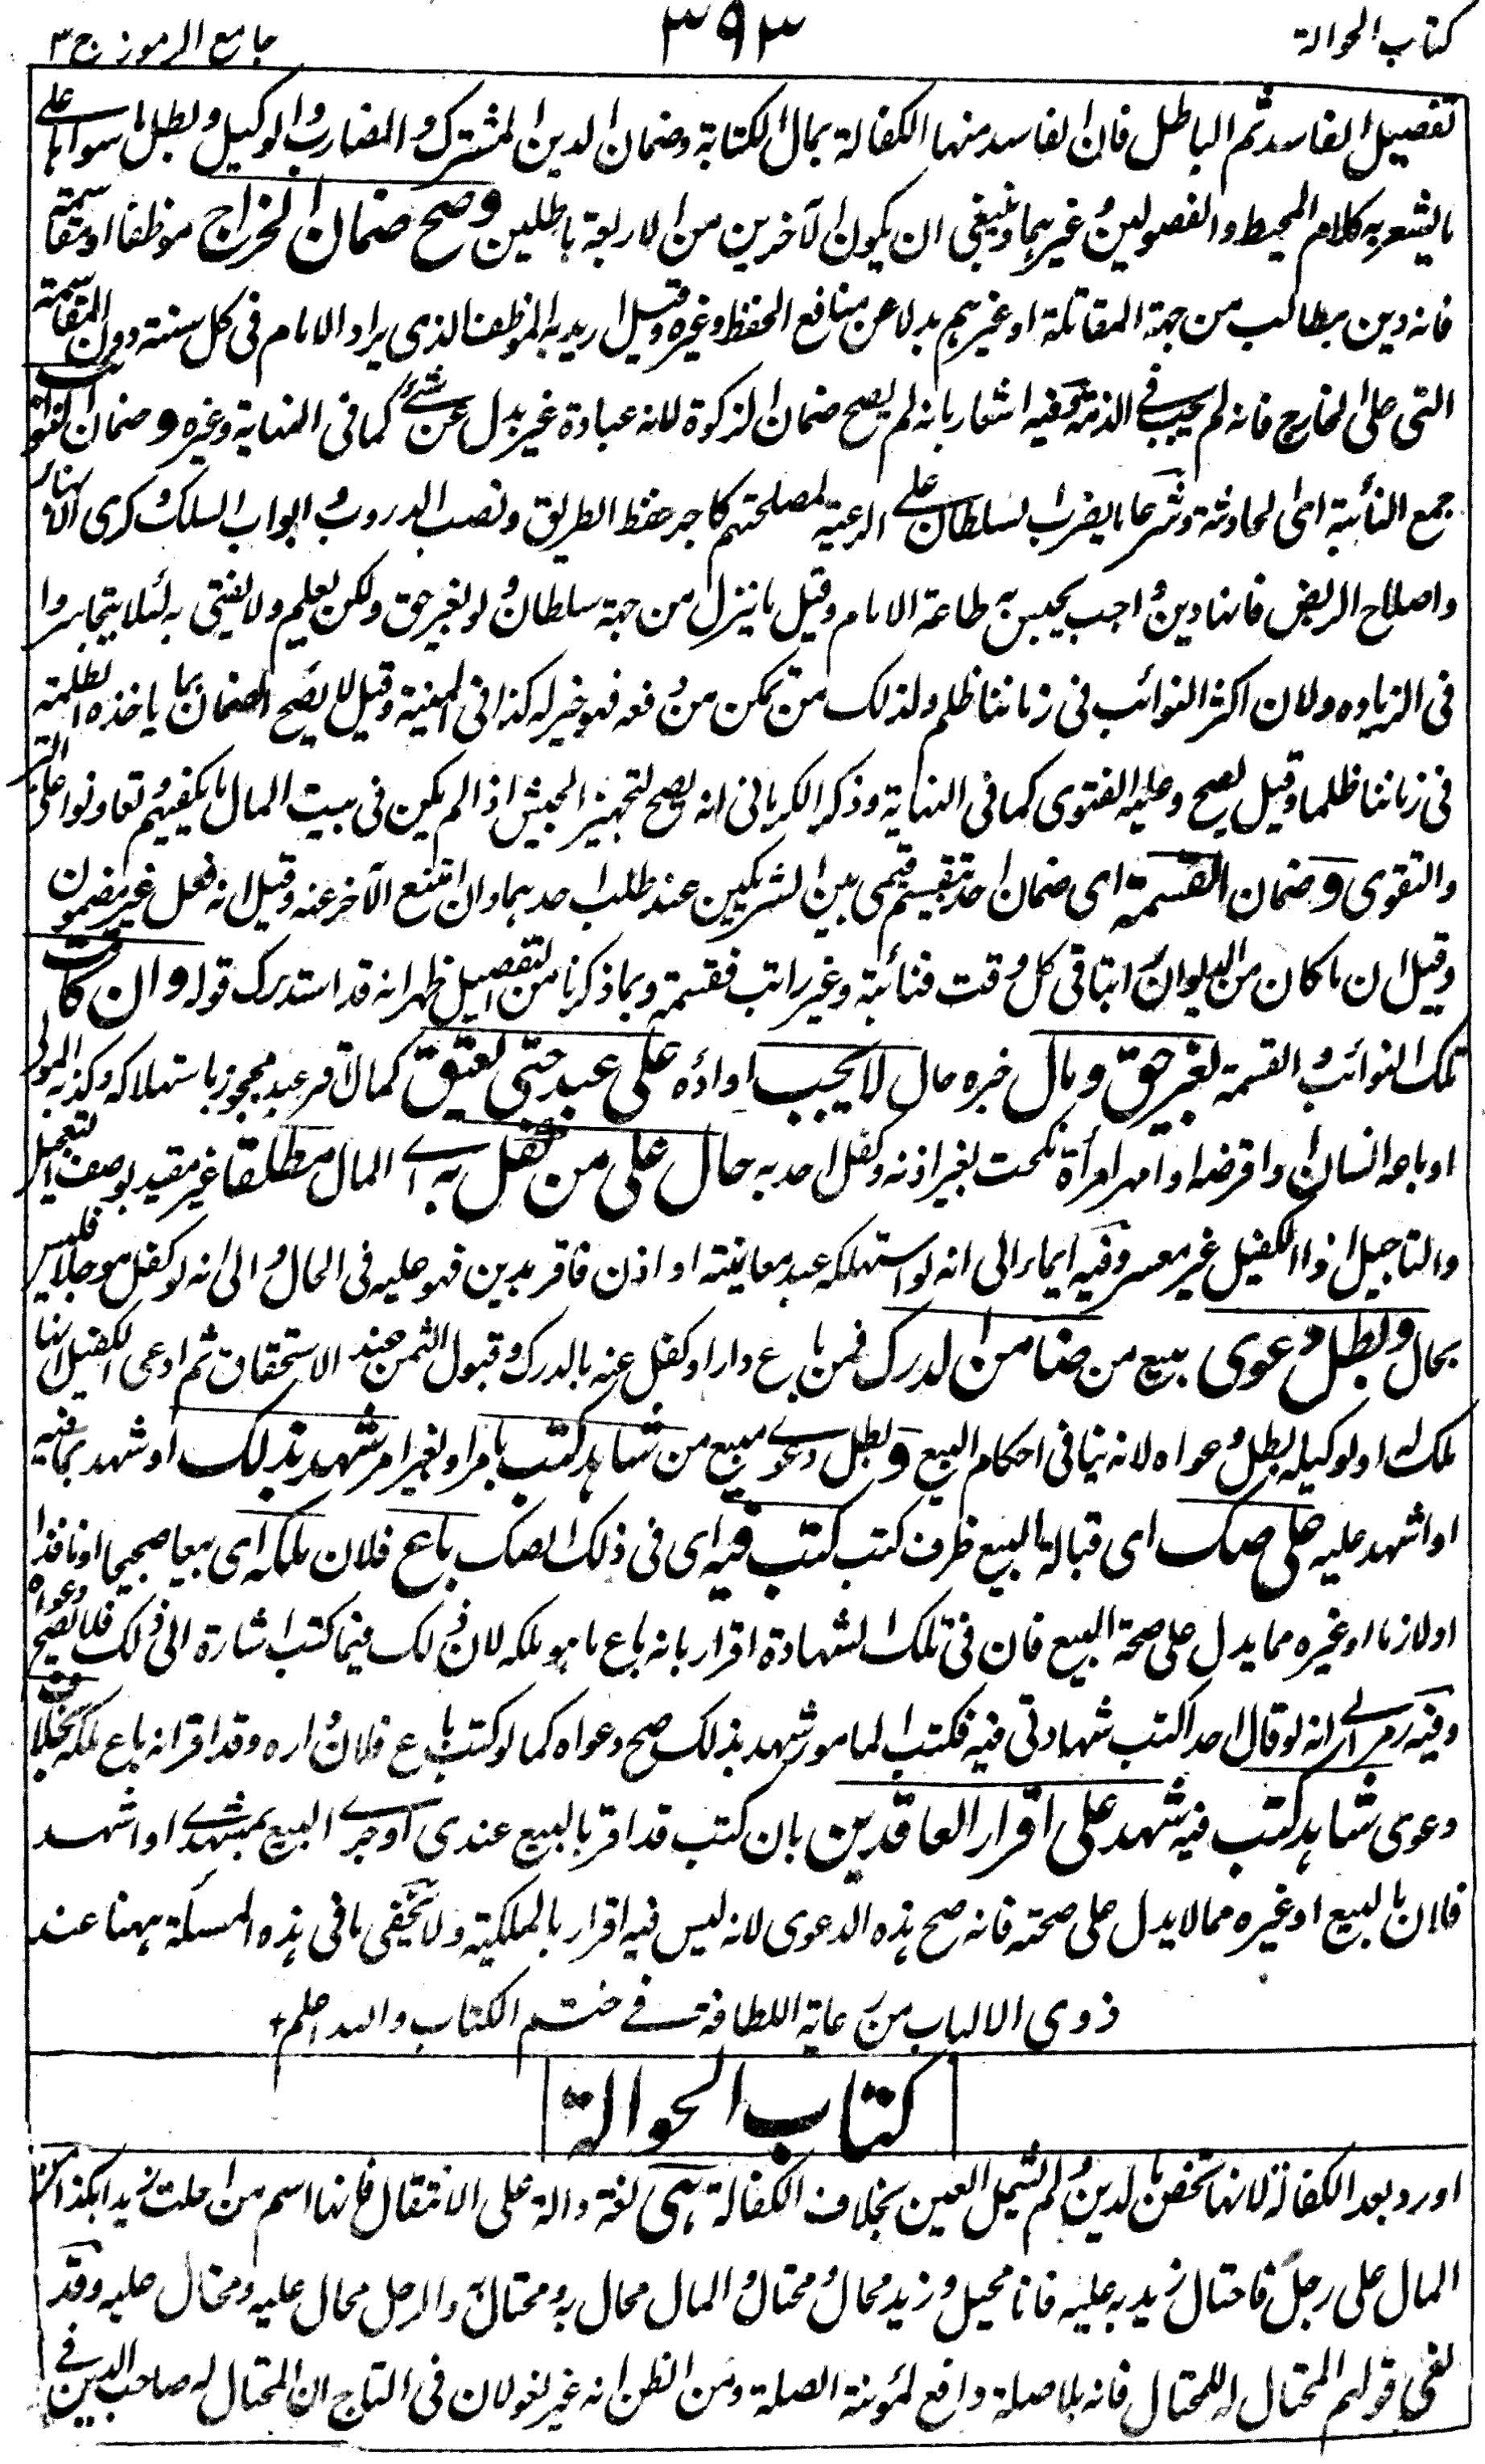 كتاب الحوالة
٣٩٣
جامع الرموز ج ٣
تفصيل الفاسد ثم الباطل فان الفاسد منها الكفالة بمال الكتابة وضمان الدين المشترك والمضارب والوكيل وبطل ما سواها على
ما يشعر به كلام المحيط والفصولين وغيرهما وينبغى ان يكون الآخرين من الاربعة باطلين وصح ضمان الخراج موظفا او مقاسمة
فانه دين مطالب من جهة المقاتلة او غيرهم بدلا عن منافع الحفظ وغيره وقيل اريد به الموظف الذى يراد الامام فى كل سنة دون المقاسمة
التى على الخارج فانه لم يجب فى الذمة وفيه اشعار بانه لم يصح ضمان الزكوة لانه عبادة غير بدل عن شئ كما فى النهاية وغيره وضمان النوائب
جمع النائبة اى الحادثة وشرعا ما يضرب السلطان على الرعية لمصلحتهم كاجر حفظ الطريق ونصب الدروب وابواب السلك وكرى الانهار
واصلاح الربض فانها دين واجب يحبس به طاعة الامام وقيل ما ينزل من جهة سلطان ولو بغير حق ولكن يعلم ولا يفتى به لئلا يتجاسروا
فى الزيادة ولان اكثر النوائب فى زماننا ظلم ولذلك من تمكن من دفعه فهو خير له كذا فى المنية وقيل لا يصح الضمان بما ياخذه الظلمة
فى زماننا ظلما وقيل يصح وعليه الفتوى كما فى النهاية وذكر الكرمانى انه يصح لتجهيز الجيش اذا لم يكن فى بيت المال ما يكفيهم تعاونوا على البر
والتقوى وضمان القسمة اى ضمان احد بتقسيم قيمى بين الشريكين عند طلب احدهما وان امتنع الآخر عنه وقيل انه فعل غير مضمون
وقيل ان ما كان من الديوان راتبا فى كل وقت فنائبة وغير راتب فقسمة وبما ذكرنا من التفصيل ظهر انه قد استدرك قوله وان كانت
تلك النوائب والقسمة بغير حق ومال خبره حال لا يجب اداؤه على عبد حتى يعتق كما لو اقر عبد محجور باستهلاكه وكذبه المولى
او باعه انسان او اقرضه او امهر امرأة نكحت بغير اذنه وكفل احد به حال على من كفل به اى المال مطلقا غير مقيد بوصف التعجيل
والتاجيل اذا الكفيل غير معسر وفيه ايماء الى انه لو استهلكه عبد معاينة او اذن فاقر بدين فهو عليه فى الحال والى انه لو كفل موجلا فليس
بحال وبطل دعوى بيع من ضامن الدرك فمن باع دارا وكفل عنه بالدرك وقبول الثمن عند الاستحقاق ثم ادعى الكفيل انها
ملك له او لوكيله بطل دعواه لانه ينافى احكام البيع وبطل دعوى مبيع من شاهد كتب بامر او بغير امر شهد بذلك او شهد بما فيه
او اشهد عليه على صك اى قبالة البيع ظرف كتب كتب فيه اى فى ذلك الصك باع فلان ملكه اى بيعا صحيحا او نافذا
او لازما او غيره مما يدل على صحة البيع فان فى تلك الشهادة اقرار بانه باع ما هو ملكه لان ذلك فيما كتب اشارة الى ذلك فلا يصح دعواه
وفيه رمز الى انه لو قال احد اكتب شهادتى فيه فكتب المامور شهد بذلك صح دعواه كما لو كتب باع فلان داره وقد اقر انه باع ملكه بخلاف
دعوى شاهد كتب فيه شهد على اقرار العاقدين بان كتب قد اقر بالبيع عندى او جرى البيع بمشهدى او اشهد
فلان بالبيع او غيره مما لا يدل على صحته فانه صح هذه الدعوى لانه ليس فيه اقرار بالملكية ولا يخفى ما فى هذه المسئلة ههنا عند
ذوى الالباب من رعاية اللطافة فى ختم الكتاب والله اعلم
كتاب الحوالة
اورد بعد الكفالة لانها تختص بالدين ولم تشمل العين بخلاف الكفالة هى لغة دالة على الانتقال فانها اسم من احلت زيدا بكذا من
المال على رجل فاحتال زيد به عليه فانا محيل وزيد محال ومحتال والمال محال به ومحتال به والرجل محال عليه ومحتال عليه وقد
لغى قولهم المحتال له للمحتال فانه بلا صلة دافع لمؤنة الصلة ومن الظن انه غير لغو لان فى التاج ان المحتال له صاحب الدين فى